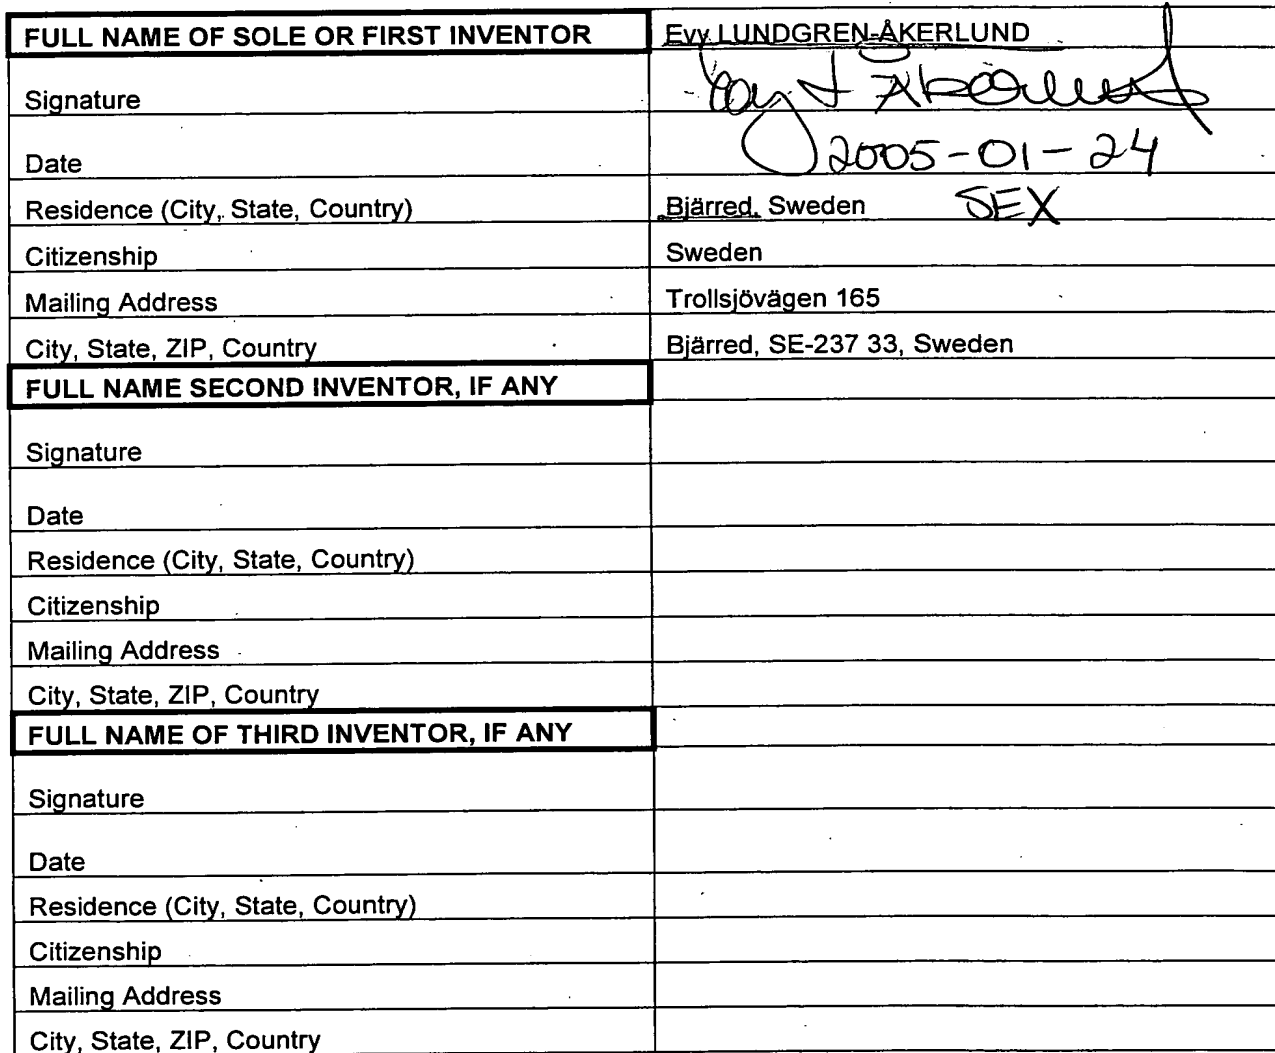 FULL NAME OF SOLE OR FIRST INVENTOR Evy LUNDGREN-ÅKERLUND
Signature
Date 2005-01-24
Residence (City, State, Country) Bjärred, Sweden SEX
Citizenship Sweden
Mailing Address Trollsjövägen 165
City, State, ZIP, Country Bjärred, SE-237 33, Sweden
FULL NAME SECOND INVENTOR, IF ANY
Signature
Date
Residence (City, State, Country)
Citizenship
Mailing Address
City, State, ZIP, Country
FULL NAME OF THIRD INVENTOR, IF ANY
Signature
Date
Residence (City, State, Country)
Citizenship
Mailing Address
City, State, ZIP, Country